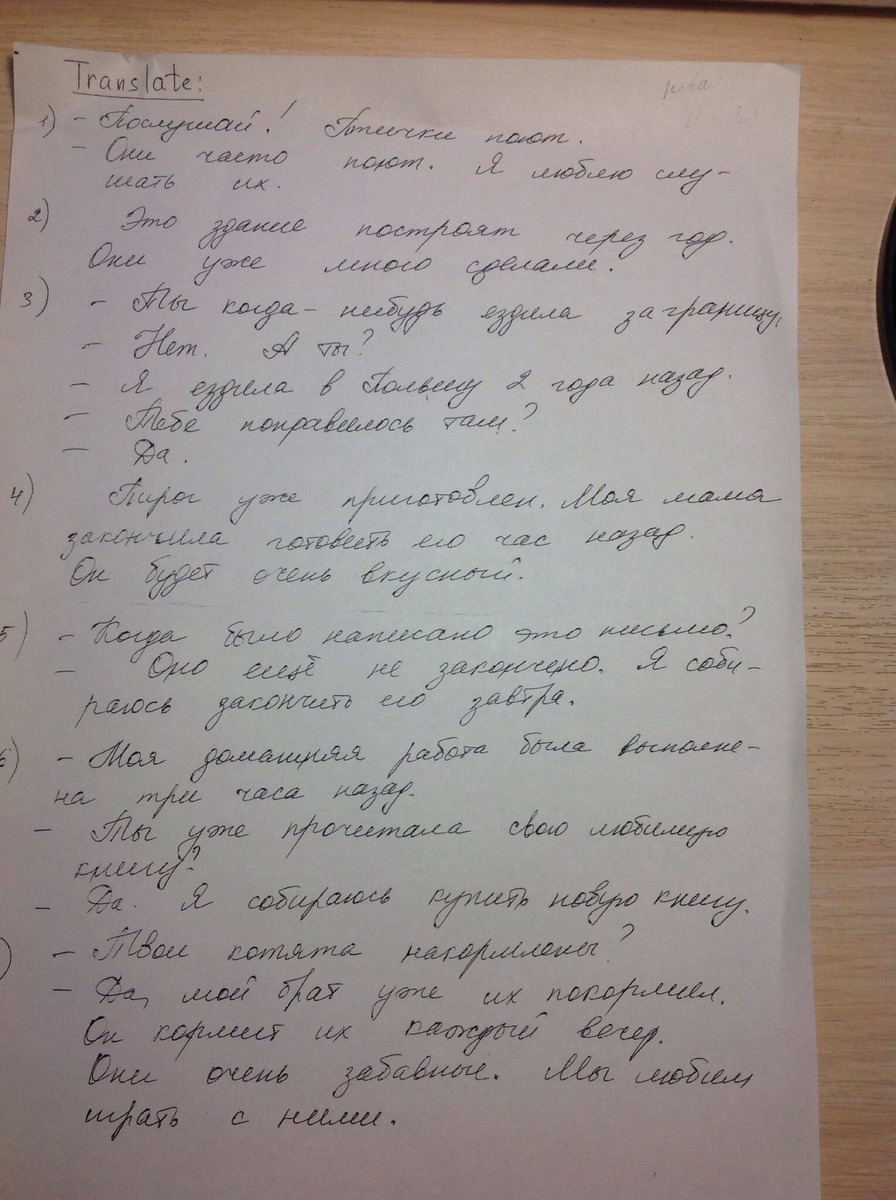 Translate:
1) - Послушай! Птички поют.
- Они часто поют. Я люблю слу-
шать их.
2) Это здание построят через год.
Они уже много сделали.
3) - Ты когда-нибудь ездила заграницу,
- Нет. А ты?
- Я ездила в Польшу 2 года назад.
- Тебе понравилось там?
- Да.
4) Пирог уже приготовлен. Моя мама
закончила готовить его час назад.
Он будет очень вкусный.
5) - Когда было написано это письмо?
- Оно ещё не закончено. Я соби-
раюсь закончить его завтра.
6) - Моя домашняя работа была выполне-
на три часа назад.
- Ты уже прочитала свою любимую
книгу?
- Да. Я собираюсь купить новую книгу.
) - Твои котята накормлены?
- Да, мой брат уже их покормил.
Он кормит их каждый вечер.
Они очень забавные. Мы любим
играть с ними.